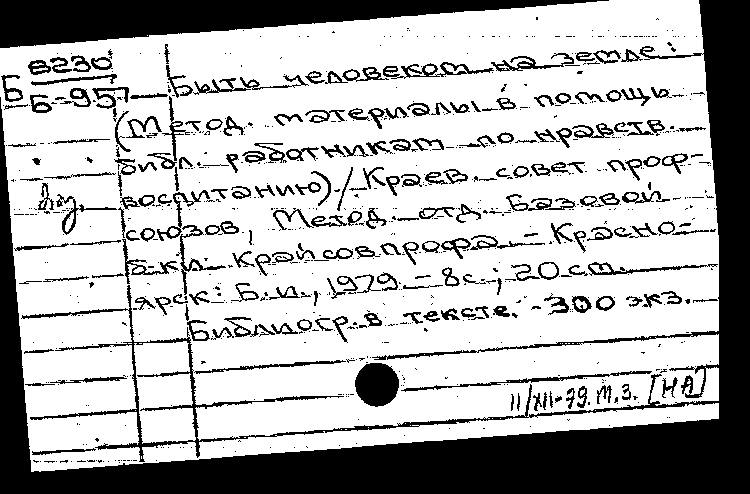 Б 8230
Б-957
Быть человеком на земле:
(Метод. материалы в помощь
библ. работникам по нравств.
воспитанию) / Краев. совет проф-
союзов, Метод. отд. Базовой
б-ки Крайсовпрофа. - Красно-
ярск: Б.и., 1979. - 8с.; 20 см.
Библиогр. в тексте. - 300 экз.
II/XII-79. м.з. [НА]